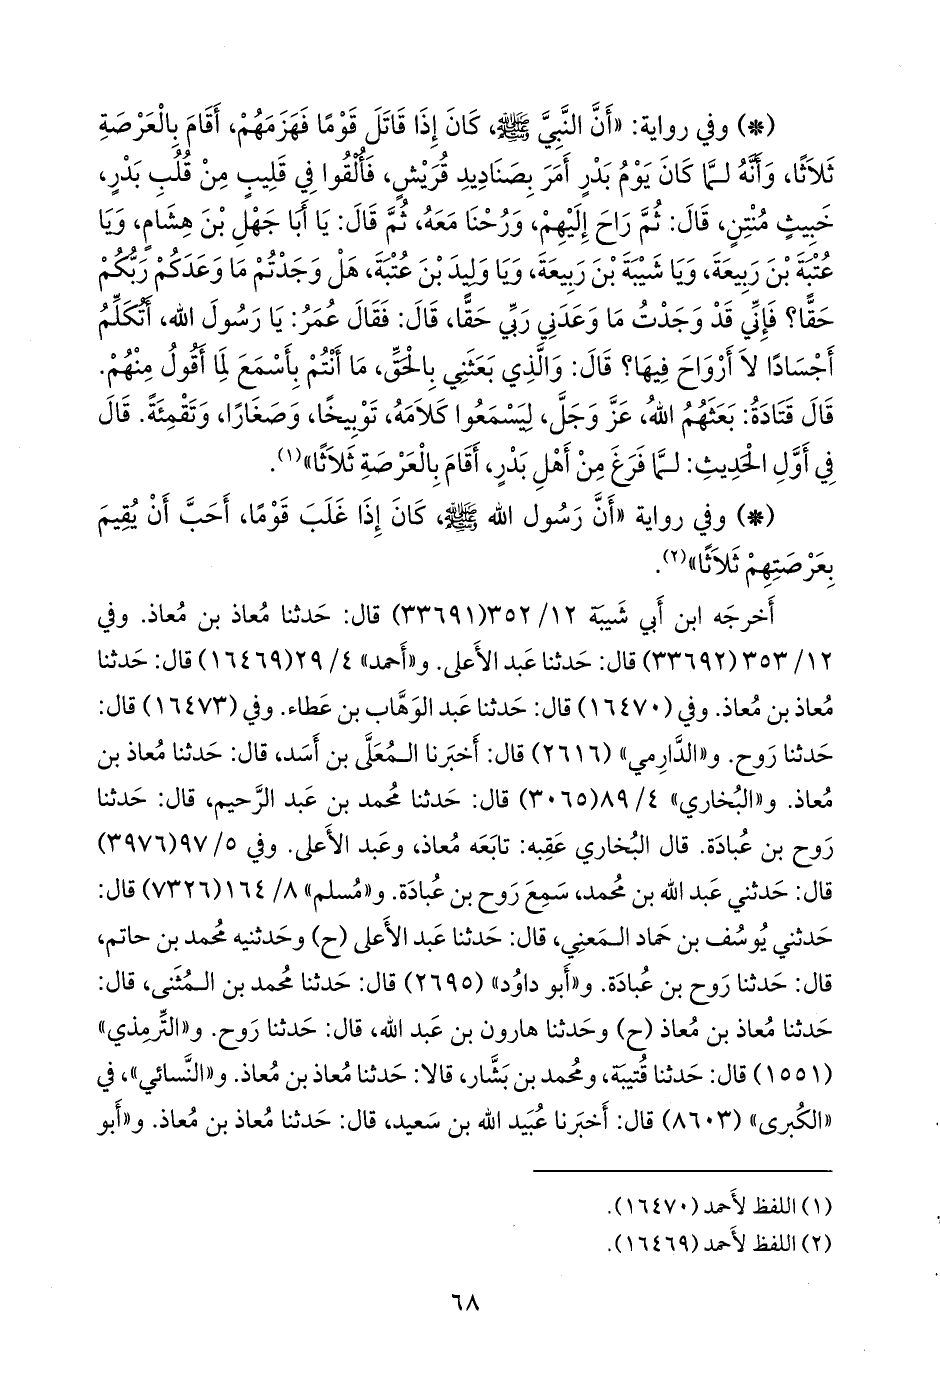 (*) وفي رواية: «أَنَّ النَّبِيَّ ﷺ، كَانَ إِذَا قَاتَلَ قَوْمًا فَهَزَمَهُمْ، أَقَامَ بِالْعَرْصَةِ
ثَلَاثًا، وَأَنَّهُ لَمَّا كَانَ يَوْمُ بَدْرٍ أَمَرَ بِصَنَادِيدِ قُرَيْشٍ، فَأُلْقُوا فِي قَلِيبٍ مِنْ قُلُبِ بَدْرٍ،
خَبِيثٍ مُنْتِنٍ، قَالَ: ثُمَّ رَاحَ إِلَيْهِمْ، وَرُحْنَا مَعَهُ، ثُمَّ قَالَ: يَا أَبَا جَهْلِ بْنَ هِشَامٍ، وَيَا
عُتْبَةَ بْنَ رَبِيعَةَ، وَيَا شَيْبَةَ بْنَ رَبِيعَةَ، وَيَا وَلِيدَ بْنَ عُتْبَةَ، هَلْ وَجَدْتُمْ مَا وَعَدَكُمْ رَبُّكُمْ
حَقًّا؟ فَإِنِّي قَدْ وَجَدْتُ مَا وَعَدَنِي رَبِّي حَقًّا، قَالَ: فَقَالَ عُمَرُ: يَا رَسُولَ الله، أَتُكَلِّمُ
أَجْسَادًا لاَ أَرْوَاحَ فِيهَا؟ قَالَ: وَالَّذِي بَعَثَنِي بِالْحَقِّ، مَا أَنْتُمْ بِأَسْمَعَ لِمَا أَقُولُ مِنْهُمْ.
قَالَ قَتَادَةُ: بَعَثَهُمُ اللهُ، عَزَّ وَجَلَّ، لِيَسْمَعُوا كَلَامَهُ، تَوْبِيخًا، وَصَغَارًا، وَتَقْمِئَةً. قَالَ
فِي أَوَّلِ الْحَدِيثِ: لَمَّا فَرَغَ مِنْ أَهْلِ بَدْرٍ، أَقَامَ بِالْعَرْصَةِ ثَلَاثًا»(١).
(*) وفي رواية «أَنَّ رَسُول الله ﷺ، كَانَ إِذَا غَلَبَ قَوْمًا، أَحَبَّ أَنْ يُقِيمَ
بِعَرْصَتِهِمْ ثَلاَثًا»(٢).
أَخرجَه ابن أَبي شَيبة ١٢/ ٣٥٢(٣٣٦٩١) قال: حَدثنا مُعاذ بن مُعاذ. وفي
١٢/ ٣٥٣ (٣٣٦٩٢) قال: حَدثنا عَبد الأَعلى. و«أَحمد» ٤/ ٢٩(١٦٤٦٩) قال: حَدثنا
مُعاذ بن مُعاذ. وفي (١٦٤٧٠) قال: حَدثنا عَبد الوَهَّاب بن عَطاء. وفي (١٦٤٧٣) قال:
حَدثنا رَوح. و«الدَّارِمي» (٢٦١٦) قال: أَخبَرنا الـمُعَلَّى بن أَسَد، قال: حَدثنا مُعاذ بن
مُعاذ. و«البُخاري» ٤/ ٨٩(٣٠٦٥) قال: حَدثنا مُحمد بن عَبد الرَّحيم، قال: حَدثنا
رَوح بن عُبادَة. قال البُخاري عَقِبه: تابَعَه مُعاذ، وعَبد الأَعلى. وفي ٥/ ٩٧(٣٩٧٦)
قال: حَدثني عَبد الله بن مُحمد، سَمِعَ رَوح بن عُبادَة. و«مُسلم» ٨/ ١٦٤(٧٣٢٦) قال:
حَدثني يُوسُف بن حَماد الـمَعني، قال: حَدثنا عَبد الأَعلى (ح) وحَدثنيه مُحمد بن حاتم،
قال: حَدثنا رَوح بن عُبادَة. و«أَبو داوُد» (٢٦٩٥) قال: حَدثنا مُحمد بن الـمُثَنى، قال:
حَدثنا مُعاذ بن مُعاذ (ح) وحَدثنا هارون بن عَبد الله، قال: حَدثنا رَوح. و«التِّرمِذي»
(١٥٥١) قال: حَدثنا قُتيبَة، ومُحمد بن بَشَّار، قالا: حَدثنا مُعاذ بن مُعاذ. و«النَّسائي»، في
«الكُبرى» (٨٦٠٣) قال: أَخبَرنا عُبَيد الله بن سَعيد، قال: حَدثنا مُعاذ بن مُعاذ. و«أَبو
(١) اللفظ لأَحمد (١٦٤٧٠).
(٢) اللفظ لأَحمد (١٦٤٦٩).
٦٨